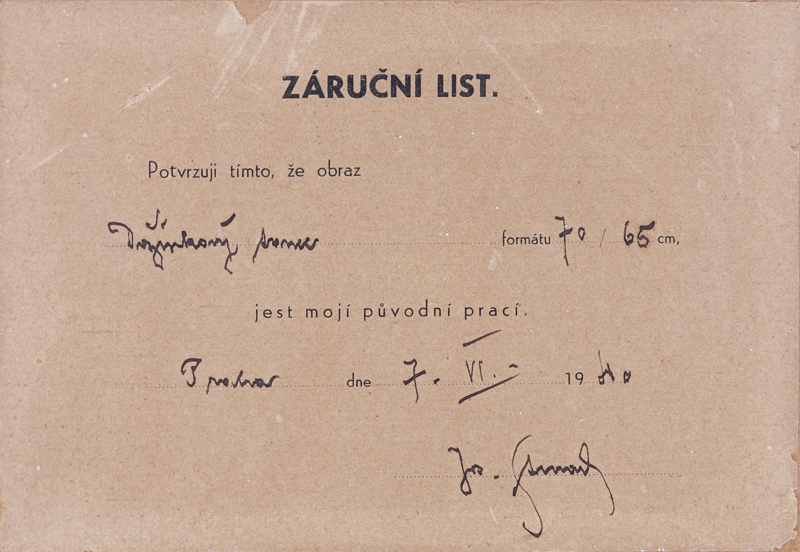 ZÁRUČNÍ LIST.
Potvrzuji tímto, že obraz
Dožínkový tanec formátu 70 / 65 cm,
jest mojí původní prací.
Praha dne 7. VI. - 1940
Jos.